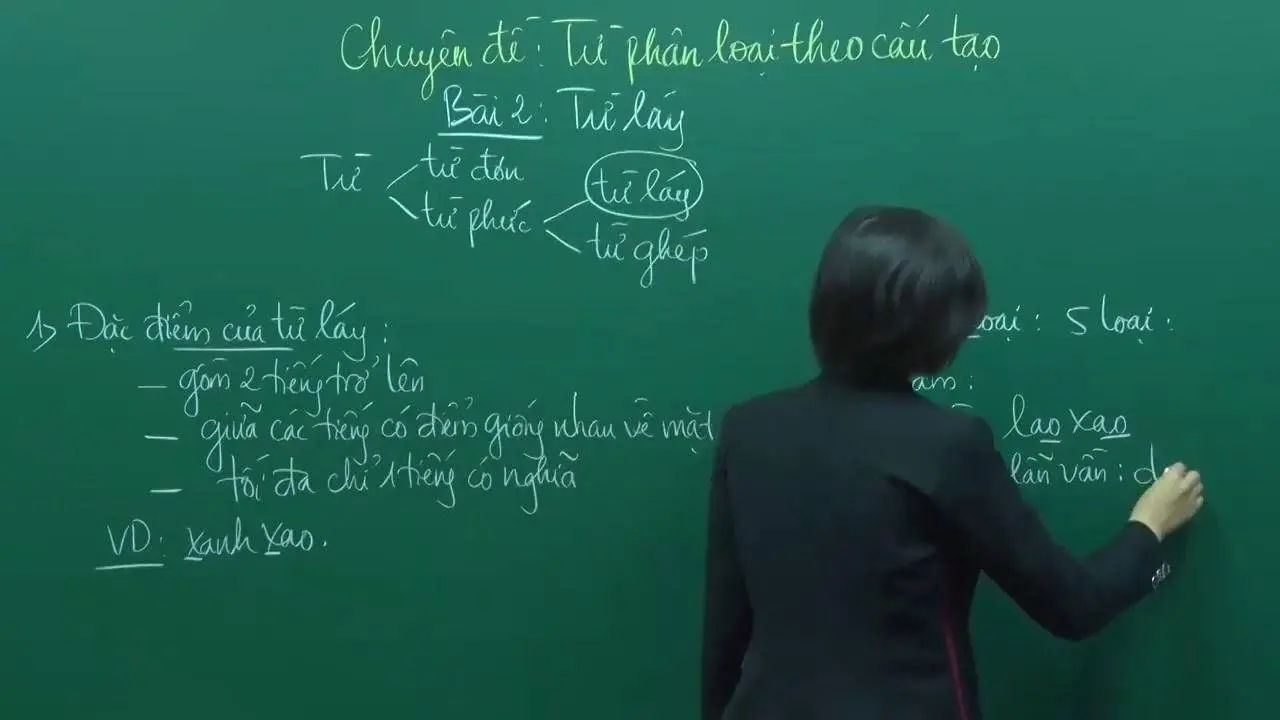 Chuyên đề: Từ phân loại theo cấu tạo
Bài 2: Từ láy
Từ
từ đơn
từ phức
từ láy
từ ghép
1) Đặc điểm của từ láy:
– gồm 2 tiếng trở lên
– giữa các tiếng có điểm giống nhau về mặt
– tối đa chỉ 1 tiếng có nghĩa
VD: xanh xao.
loại: 5 loại:
âm:
lao xao
lẫn vần: d